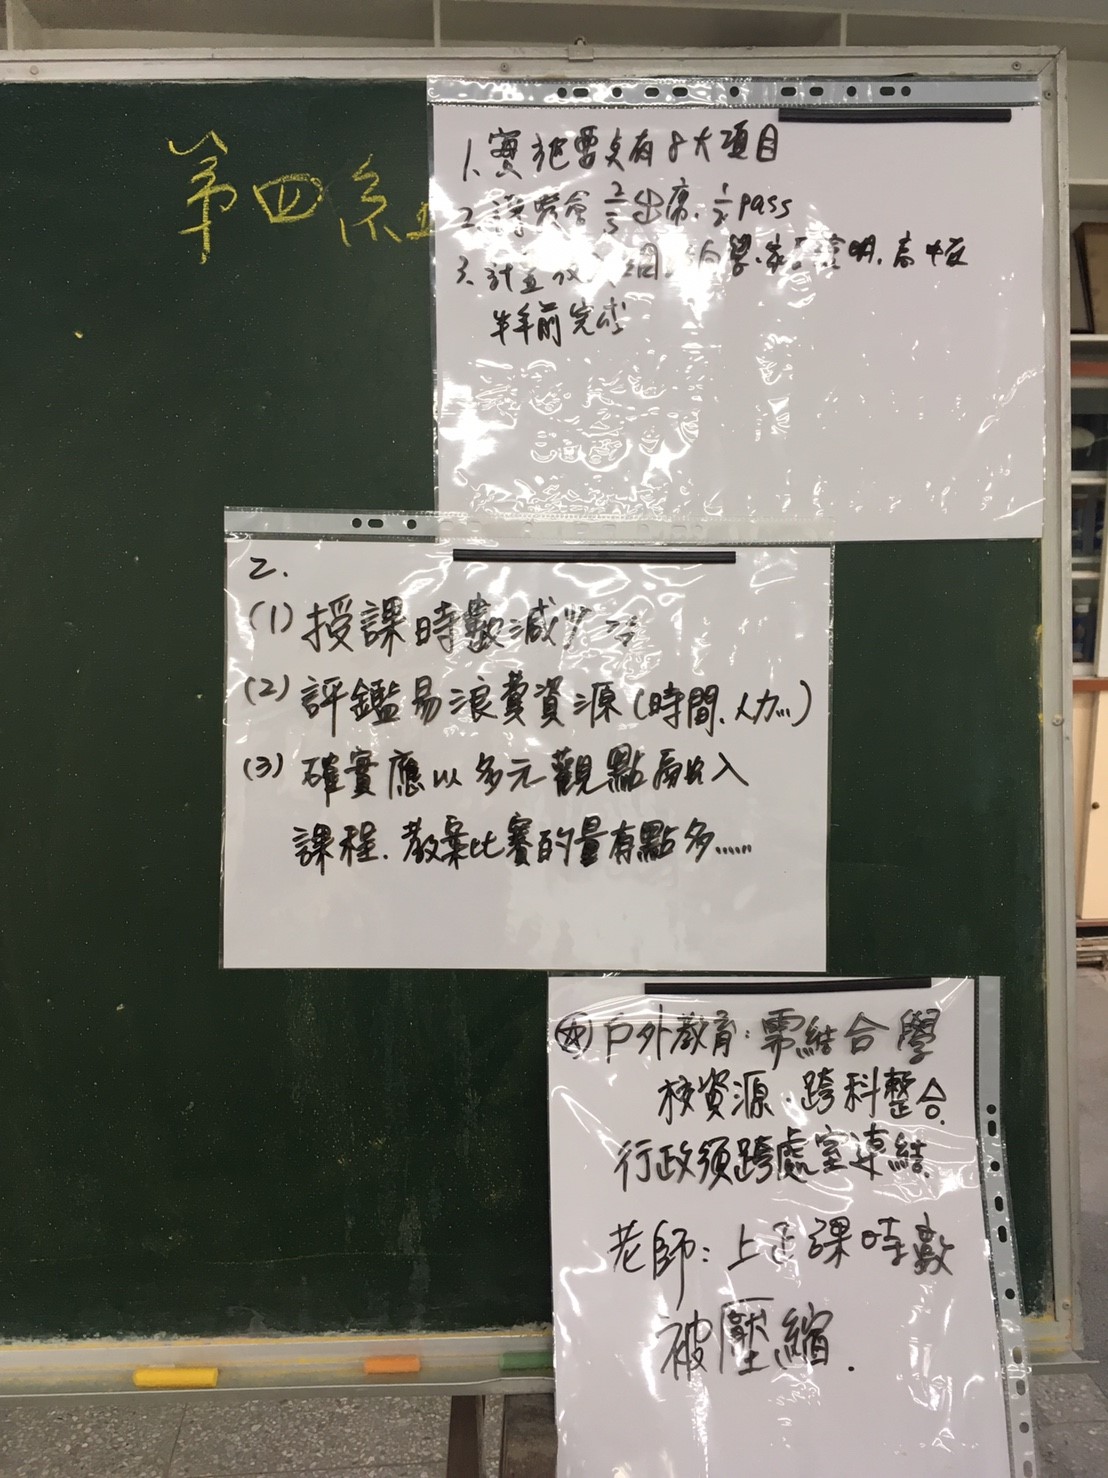 第四組
1. 實施要點有8大項目
2. 課發會 2/3 出席. 1/2 pass
3. 計畫 明. 高中 半年前完成
2.
(1) 授課時數減少
(2) 評鑑易浪費資源(時間.人力...)
(3) 確實應以多元觀點 入
課程. 教案比賽的量有點多......
戶外教育: 需結合學
校資源. 跨科整合.
行政須跨處室連結.
老師: 上正課時數
被壓縮.